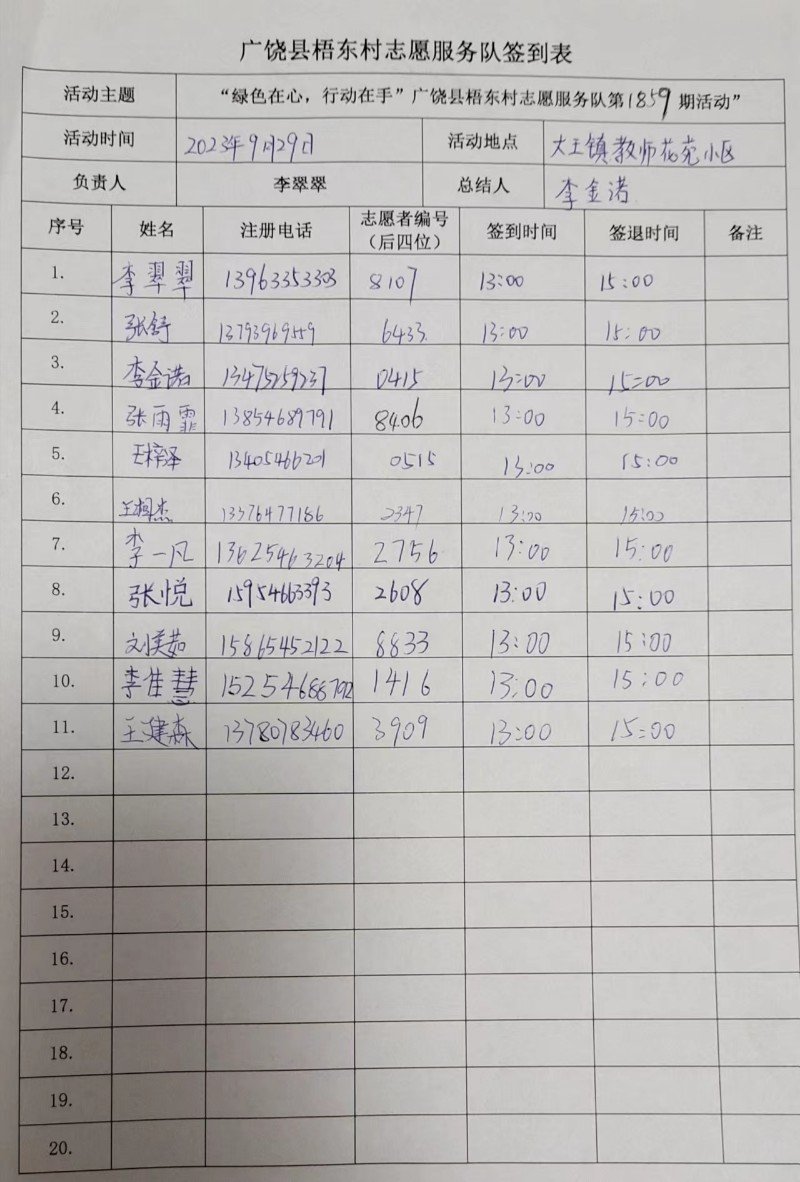 广饶县梧东村志愿服务队签到表
活动主题 “绿色在心，行动在手”广饶县梧东村志愿服务队第1859期活动”
活动时间 2023年9月29日 活动地点 大王镇教师花苑小区
负责人 李翠翠 总结人 李金诺
序号 姓名 注册电话 志愿者编号（后四位） 签到时间 签退时间 备注
1. 李翠翠 13963353303 8107 13:00 15:00
2. 张舒 13793969559 6433 13:00 15:00
3. 李金诺 13475259237 0415 13:00 15:00
4. 张雨霏 13854689791 8406 13:00 15:00
5. 王梓泽 13405466201 0515 13:00 15:00
6. 王相杰 13376477186 2347 13:00 15:00
7. 李一凡 13625463204 2756 13:00 15:00
8. 张悦 15954663393 2608 13:00 15:00
9. 刘美茹 15865452122 8833 13:00 15:00
10. 李佳慧 15254688792 1416 13:00 15:00
11. 王建森 13780783460 3909 13:00 15:00
12.
13.
14.
15.
16.
17.
18.
19.
20.